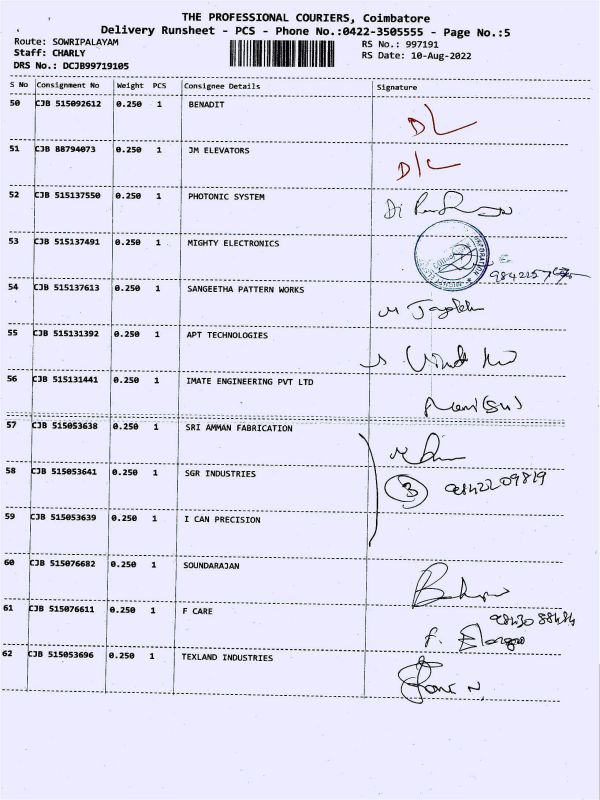 THE PROFESSIONAL COURIERS, Coimbatore
Delivery Runsheet - PCS - Phone No.:0422-3505555 - Page No.:5
Route: SOWRIPALAYAM RS No.: 997191
Staff: CHARLY RS Date: 10-Aug-2022
DRS No.: DCJB99719105
S No Consignment No Weight PCS Consignee Details Signature
50 CJB 515092612 0.250 1 BENADIT
DL
51 CJB 88794073 0.250 1 JM ELEVATORS
D/L
52 CJB 515137550 0.250 1 PHOTONIC SYSTEM
53 CJB 515137491 0.250 1 MIGHTY ELECTRONICS
54 CJB 515137613 0.250 1 SANGEETHA PATTERN WORKS
55 CJB 515131392 0.250 1 APT TECHNOLOGIES
56 CJB 515131441 0.250 1 IMATE ENGINEERING PVT LTD
57 CJB 515053638 0.250 1 SRI AMMAN FABRICATION
58 CJB 515053641 0.250 1 SGR INDUSTRIES
3 9842209819
59 CJB 515053639 0.250 1 I CAN PRECISION
60 CJB 515076682 0.250 1 SOUNDARAJAN
61 CJB 515076611 0.250 1 F CARE
62 CJB 515053696 0.250 1 TEXLAND INDUSTRIES